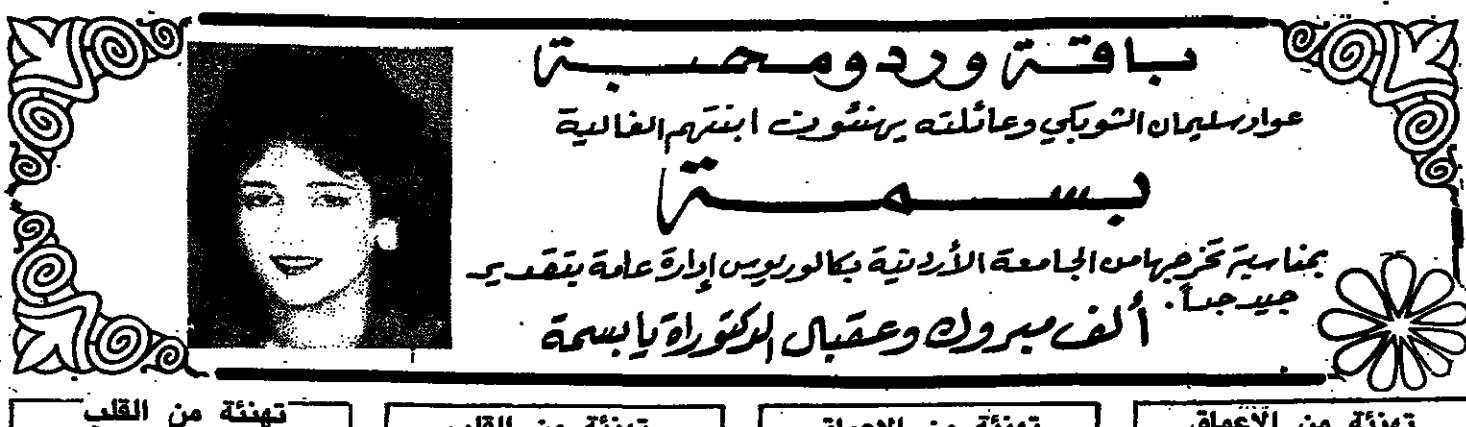 باقة ورد ومحبة
عواد سليمان الشوبكي وعائلته يهنئون ابنتهم الغالية
بسمة
بمناسبة تخرجها من الجامعة الأردنية بكالوريوس إدارة عامة بتقدير
جيد جداً.
ألف مبروك وعقبال الدكتوراة يا بسمة
تهنئة من الأعماق
تهنئة من الأعماق
تهنئة من القلب
تهنئة من القلب